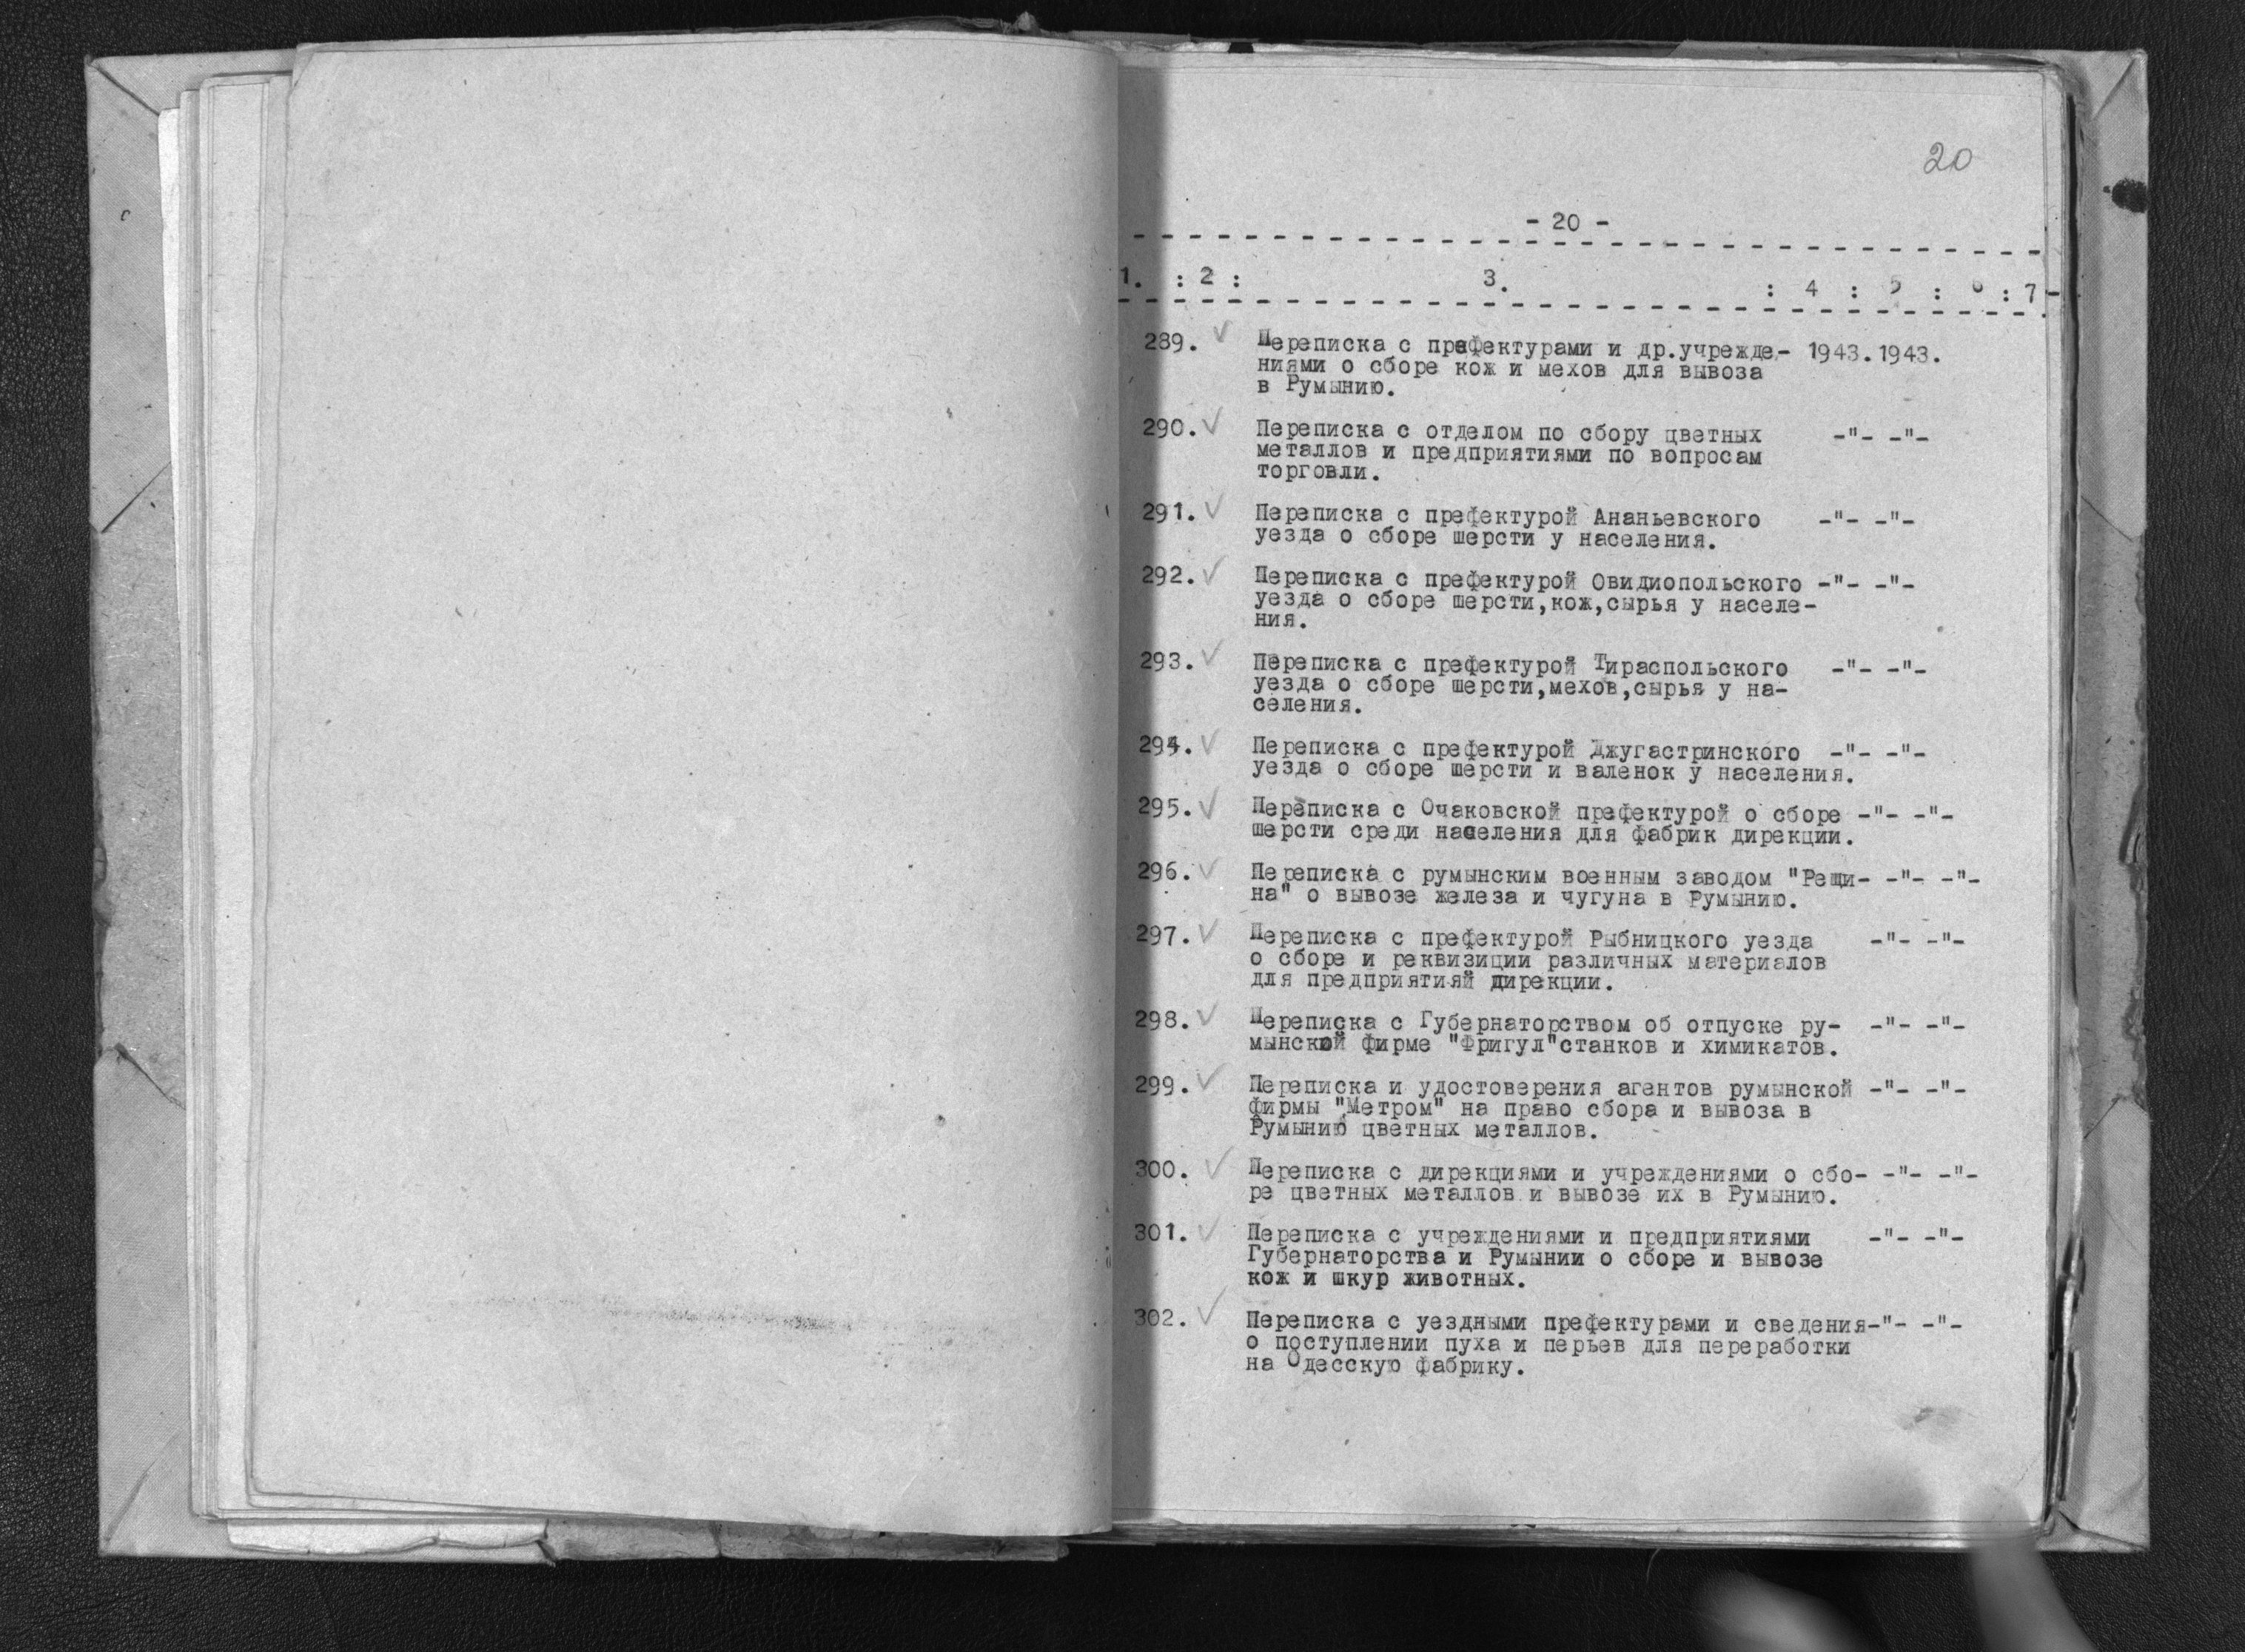 20
- 20 -
1. : 2 : 3. : 4 : 5 : 6 : 7
289. ✓ Переписка с префектурами и др.учрежде- 1943.1943.
ниями о сборе кож и мехов для вывоза
в Румынию.
290. ✓ Переписка с отделом по сбору цветных -"- -"-
металлов и предприятиями по вопросам
торговли.
291. ✓ Переписка с префектурой Ананьевского -"- -"-
уезда о сборе шерсти у населения.
292. ✓ Переписка с префектурой Овидиопольского -"- -"-
уезда о сборе шерсти,кож,сырья у населе-
ния.
293. ✓ Переписка с префектурой Тираспольского -"- -"-
уезда о сборе шерсти,мехов,сырья у на-
селения.
294. ✓ Переписка с префектурой Джугастринского -"- -"-
уезда о сборе шерсти и валенок у населения.
295. ✓ Переписка с Очаковской префектурой о сборе -"- -"-
шерсти среди населения для фабрик дирекции.
296. ✓ Переписка с румынским военным заводом "Рещи- -"- -"-
на" о вывозе железа и чугуна в Румынию.
297. ✓ Переписка с префектурой Рыбницкого уезда -"- -"-
о сборе и реквизиции различных материалов
для предприятияй дирекции.
298. ✓ Переписка с Губернаторством об отпуске ру- -"- -"-
мынской фирме "Фригул"станков и химикатов.
299. ✓ Переписка и удостоверения агентов румынской -"- -"-
фирмы "Метром" на право сбора и вывоза в
Румынию цветных металлов.
300. ✓ Переписка с дирекциями и учреждениями о сбо- -"- -"-
ре цветных металлов и вывозе их в Румынию.
301. ✓ Переписка с учреждениями и предприятиями -"- -"-
Губернаторства и Румынии о сборе и вывозе
кож и шкур животных.
302. ✓ Переписка с уездными префектурами и сведения-"- -"-
о поступлении пуха и перьев для переработки
на Одесскую фабрику.